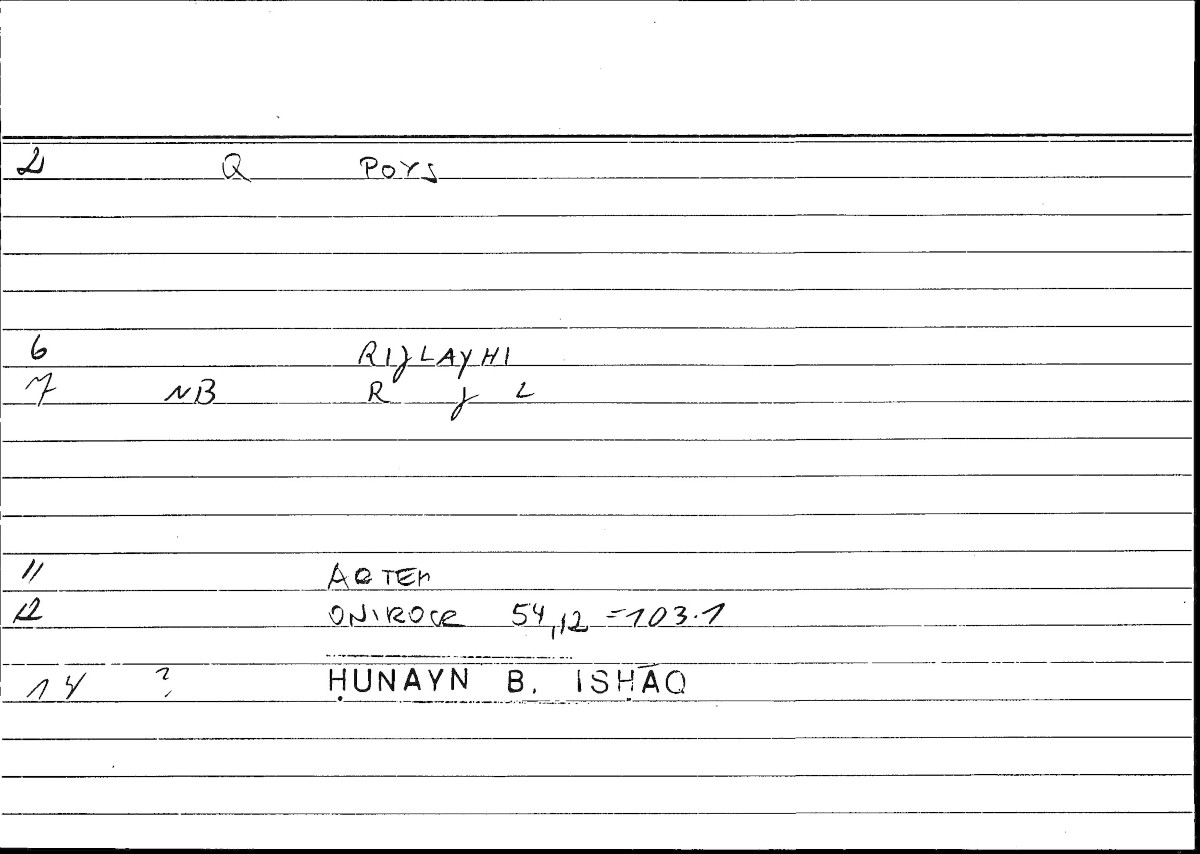 2 Q POYS
6 RIJLAYHI
7 NB R J L
11 ARTEM
12 ONIROCR 54,12 =103.1
14 ? ḤUNAYN B. ISḤĀQ